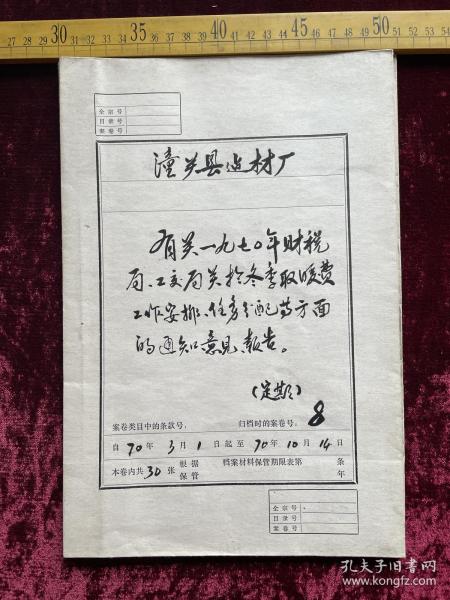 27 28 29 30 31 32 33 34 35 36 37 38 39 40 41 42 43 44 45 46 47 48 49 50 51 52
全宗号
目录号
案卷号
潼关县造材厂
有关一九七〇年财税
局、工交局关于冬季取暖费
工作安排、任务分配等方面
的通知意见、报告。
(定期)
案卷类目中的条款号: 归档时的案卷号: 8
自70年3月1日起至70年10月14日
本卷内共30张 根据保管 档案材料保管期限表第 条年
全宗号
目录号
案卷号
孔夫子旧书网
www.kongfz.com